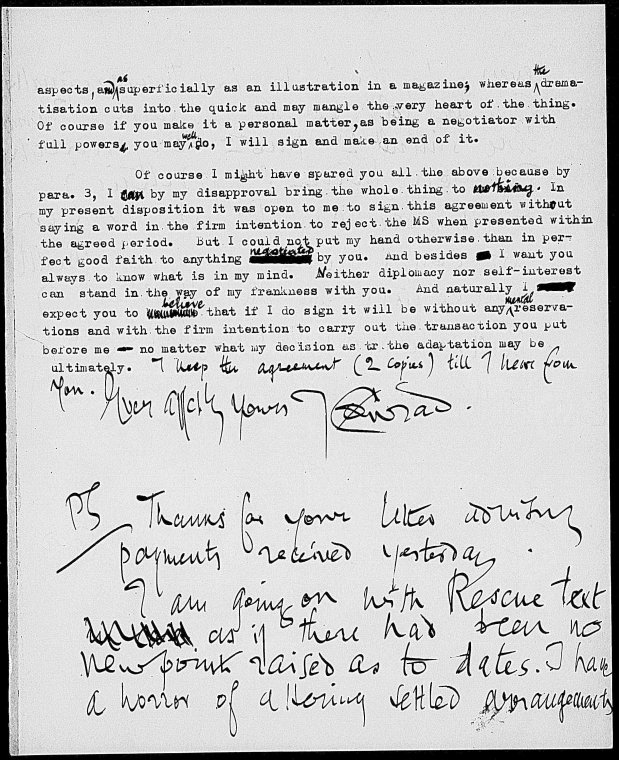 aspects, and as superficially as an illustration in a magazine; whereas the drama-
tisation cuts into the quick and may mangle the very heart of the thing.
Of course if you make it a personal matter, as being a negotiator with
full powers, you may well do, I will sign and make an end of it.
Of course I might have spared you all the above because by
para. 3, I can by my disapproval bring the whole thing to nothing. In
my present disposition it was open to me to sign this agreement without
saying a word in the firm intention to reject the MS when presented within
the agreed period. But I could not put my hand otherwise than in per-
fect good faith to anything negotiated by you. And besides I want you
always to know what is in my mind. Neither diplomacy nor self-interest
can stand in the way of my frankness with you. And naturally I
expect you to believe that if I do sign it will be without any mental reserva-
tions and with the firm intention to carry out the transaction you put
before me — no matter what my decision as tr the adaptation may be
ultimately. I keep the agreement (2 copies) till I hear from
you. Ever affctly yours J Conrad.
PS Thanks for your letter advising
payments received yesterday.
I am going on with Rescue text
as if there had been no
new point raised as to dates. I have
a horror of altering settled arrangements